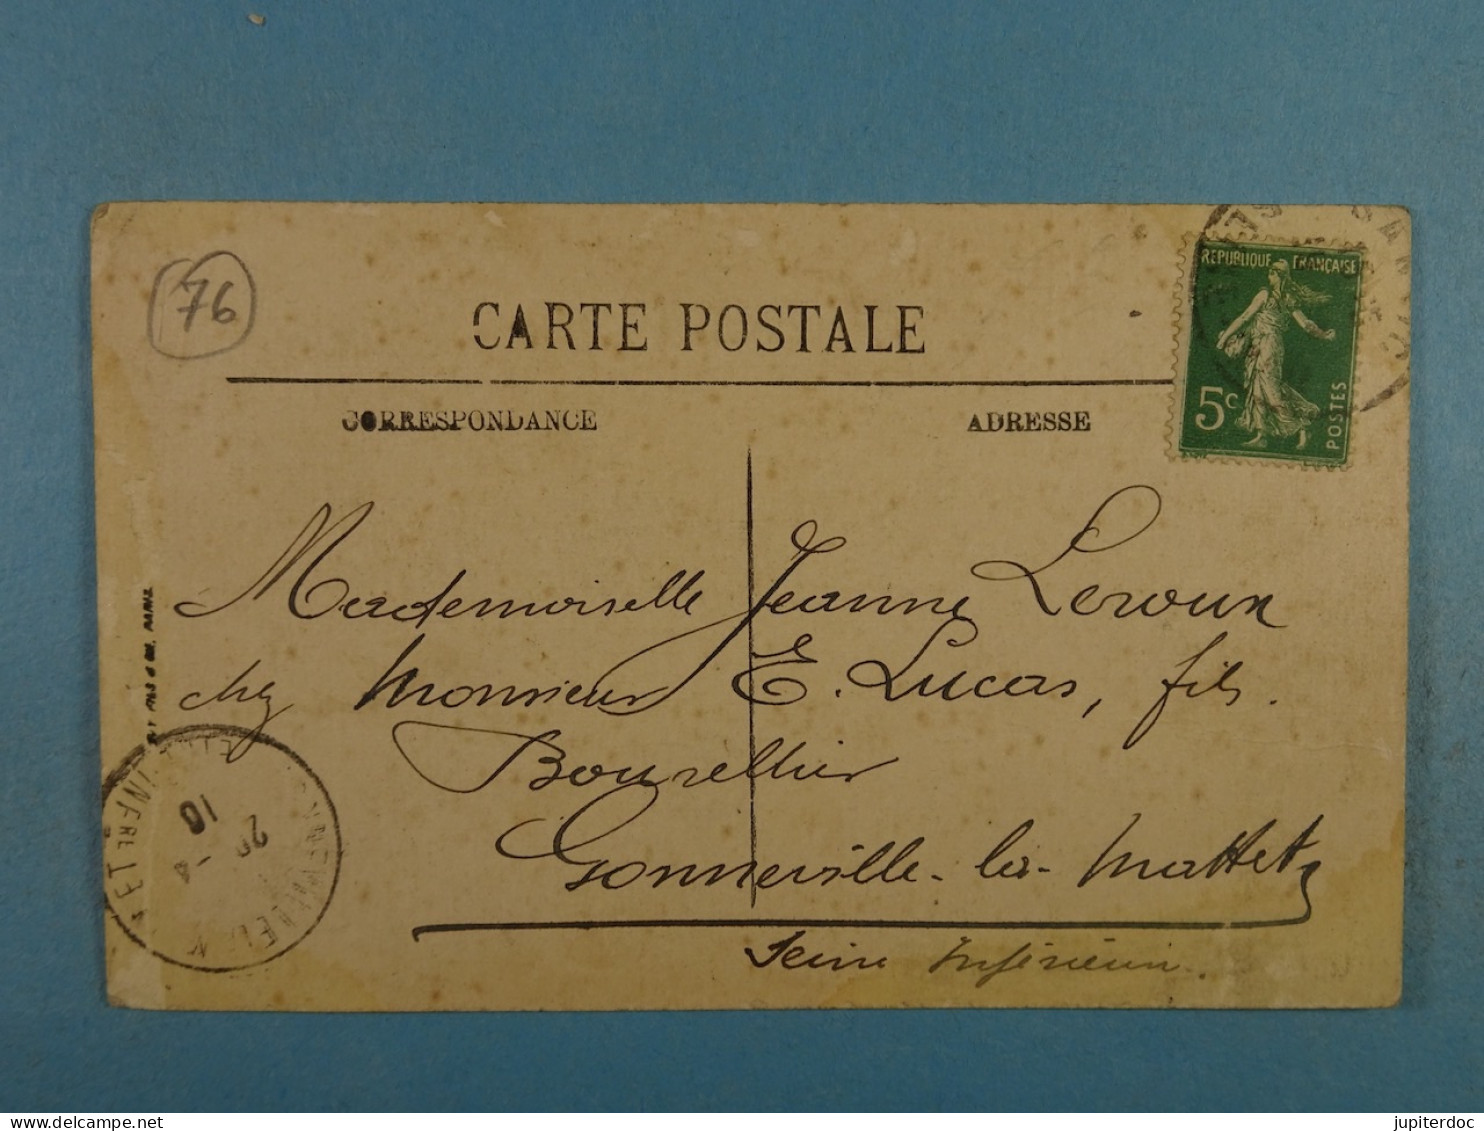 76
CARTE POSTALE
CORRESPONDANCE
ADRESSE
REPUBLIQUE FRANÇAISE
5c
POSTES
Mademoiselle Jeanne Leroux
chez Monsieur E. Lucas, fils.
Bourellier
Gonneville-la-Mallet
Seine Inférieure.
10
20 - 4
jupiterdoc